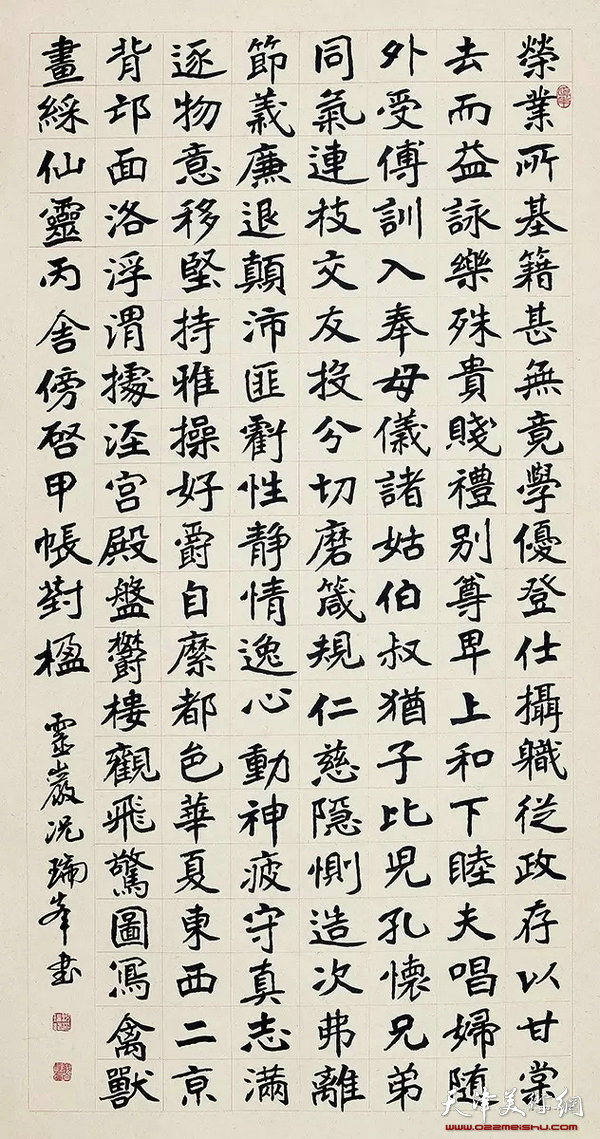 榮業所基籍甚無竟學優登仕攝職從政存以甘棠
去而益詠樂殊貴賤禮別尊卑上和下睦夫唱婦随
外受傅訓入奉母儀諸姑伯叔猶子比児孔懷兄弟
同氣連枝交友投分切磨箴規仁慈隱惻造次弗離
節義廉退顛沛匪虧性静情逸心動神疲守真志满
逐物意移堅持雅操好爵自縻都邑華夏東西二京
背邙面洛浮渭據涇宮殿盤鬱樓觀飛驚圖寫禽獸
畫綵仙靈丙舎傍啓甲帳對楹
靈巖况瑞峯书
天津美術網
www.022meishu.com